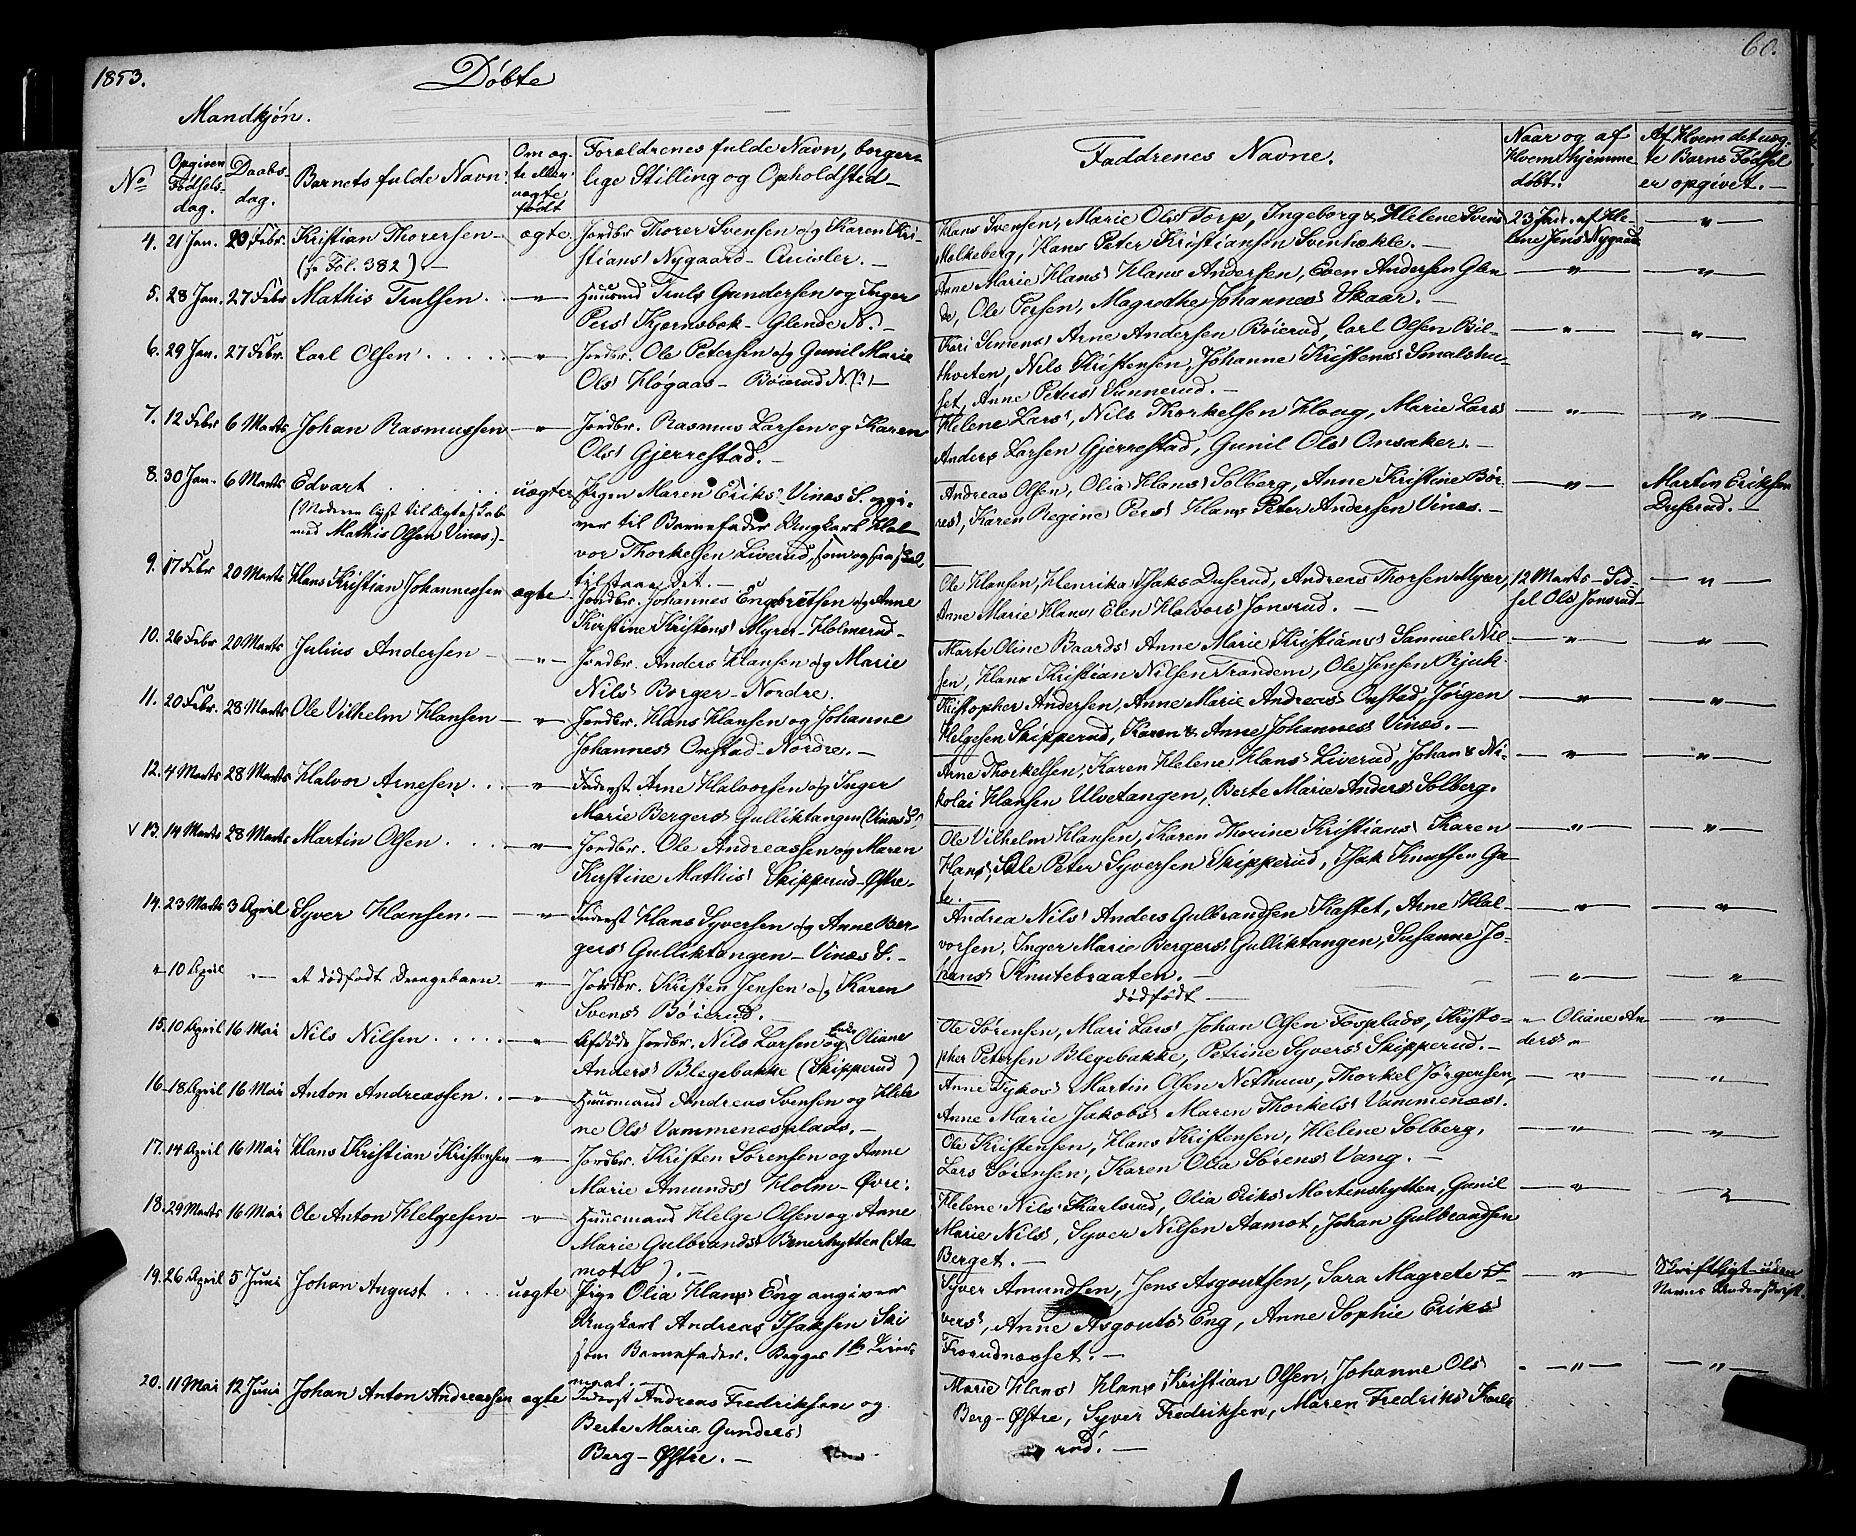 1853.
Døbte
60.
Mandkjøn.
No
Opgiven Fødselsdag.
Daabsdag.
Barnets fulde Navn.
Om ægte eller uægte født
Forældrenes fulde Navn, borgerlige Stilling og Opholdsted
Faddrenes Navne.
Naar og af Hvem hjemmedøbt.
Af Hvem det uægte Barns Fødsel er opgivet.
4. 21 Jan. 20 Febr. Kristian Thorersen ægte Jordbr Thorer Svensen og Karen Kri-
(se Fol. 382) stians Nygaard - Qvisler.
Hans Svensen, Marie Ols Torp, Ingeborg & Helene Svens
Molkeberg, Hans Peter Kristiansen Svinhække.
23 Jan. af He-
lene Jens Nygaard
5. 28 Jan. 27 Febr Mathis Trulsen. " Huusmd Truls Gundersen og Inger
Pers Kjernsbæk - Glende N.
Anne Marie Hans, Hans Andersen, Even Andersen Glen-
de, Ole Persen, Magrethe Johannes Skaar.
6. 29 Jan. 27 Febr. Carl Olsen " Jordbr. Ole Petersen og Gunil Marie
Ols Høgaas - Bøierud N.
Kari Simens, Arne Andersen Bøierud, Carl Olsen Bil-
thorten, Nils Kristensen, Johanne Kristens Smalshu-
set, Anne Peters Sannerud.
7. 12 Febr 6 Marts Johan Rasmussen " Jordbr. Rasmus Larsen og Karen
Ols Gjerrestad.
Helene Lars, Nils Thorkelsen Haag, Marie Lars
Anders Larsen Gjerrestad, Gunil Ols Onsaker.
8. 30 Jan. 6 Marts Edvart uægte Pigen Maren Eriks Vinæs S. opgi-
(Moderen lyst til Ægteskab
med Mathis Olsen Vinæs)
ver til Barnefader Ungkarl Hal-
vor Thorkelsen Liverud, som ogsaa skal
tilstaae det.
Andreas Olsen, Olia Hans Solberg, Anne Kristine Bør-
res, Karen Regine Pers, Hans Peter Andersen Vinæs.
Martin Eriksen
Duserud.
9. 17 Febr 20 Marts Hans Kristian Johannessen ægte Jordbr. Johannes Engebretsen og Anne
Kirstine Kristens Myrer - Holmerud
Ole Hansen, Henrika Isaks Duserud, Andreas Thorsen Myrer,
Anne Marie Hans, Elen Halvors Jonsrud.
12 Marts - Sid-
sel Ols Jonsrud
10. 26 Febr 20 Marts Julius Andersen " Jordbr. Anders Hansen og Marie
Nils Borger - Nordre.
Marte Oline Baards, Anne Marie Kristians, Samuel Nil-
sen, Hans Kristian Nilsen Trandem, Ole Jensen Rjuk
11. 20 Febr. 28 Marts Ole Vilhelm Hansen " Jordbr. Hans Hansen og Johanne
Johannes Onstad - Nordre.
Kristopher Andersen, Anne Marie Andreas Onstad, Jørgen
Helgesen Skipperud, Karen & Anne Johannes Vinæs.
12. 4 Marts 28 Marts Halvor Arnesen. " Inderst Arne Halvorsen og Inger
Marie Bergers Gulliktangen (Vinæs S.)
Arne Thorkelsen, Karen Helene Hans Liverud, Johan & Ni-
kolai Hansen Ulvetangen, Berte Marie Anders Solberg.
v 13. 14 Marts 28 Marts Martin Olsen " Jordbr. Ole Andreassen og Maren
Kirstine Mathis Skipperud - Østre.
Ole Vilhelm Hansen, Karen Thorine Kristians, Karen
Hans, Ole Peter Syversen Skipperud, Isak Knutsen Ga-
te.
14. 23 Marts 3 April Syver Hansen. " Inderst Hans Syversen og Anne Ber-
gers Gulliktangen - Vinæs S.
Andrea Nils, Anders Gulbrandsen Kastet, Arne Hal-
vorsen, Inger Marie Bergers Gulliktangen, Susanne Jo-
hans Knutebraaten.
" 10 April " et dødfødt Drengebarn " Jordbr. Kristen Jensen og Karen
Svens Bøierud.
dødfødt
15. 10 April 16 Mai Nils Nilsen " Afdøde Jordbr. Nils Larsen og Enke Oliane
Anders Blegebakke (Skipperud)
Ole Sørensen, Mari Lars, Johan Olsen Fosplads, Kristo-
pher Petersen Blegebakke, Petrine Syvers Skipperud.
" Oliane An-
ders "
16. 18 April 16 Mai Anton Andreassen " Huusmand Andreas Svensen og Hele-
ne Ols Vammenæsplads.
Anne Tykos, Martin Olsen Nethuus, Thorkel Jørgensen,
Anne Marie Jakobs, Maren Thorkels Vammenæs.
17. 14 April 16 Mai Hans Kristian Kristensen " Jordbr. Kristen Sørensen og Anne
Marie Amunds Holm - Øvre.
Ole Kristensen, Hans Kristensen, Helene Solberg,
Lars Sørensen, Karen Olia Sørens Vang.
18. 29 Marts 16 Mai Ole Anton Helgesen " Huusmand Helge Olsen og Anne
Marie Gulbrands Benerhytten (Aa-
mot).
Helene Nils Karlsrud, Olia Eriks Mortenshytten, Gunil
Marie Nils, Syver Nilsen Aamot, Johan Gulbrandsen
Berget.
19. 26 April 5 Juni Johan August uægte Pige Olia Hans Eng angiver
Ungkarl Andreas Isaksen Ski
som Barnefader. Begges 1ste Leier-
maal.
Syver Amundsen, Jens Asgoutsen, Sara Magrete
vers, Anne Asgouts Eng, Anne Sophie Eriks
Froeudnæsset.
Skriftligt uden
Navns Underskrift.
20. 11 Mai 12 Juni Johan Anton Andreassen ægte Inderst Andreas Fredriksen og
Berte Marie Gunders
Berg - Østre.
Marie Hans, Hans Kristian Olsen, Johanne Ols
Berg - Østre, Syver Fredriksen, Maren Fredriks Karls-
rud.